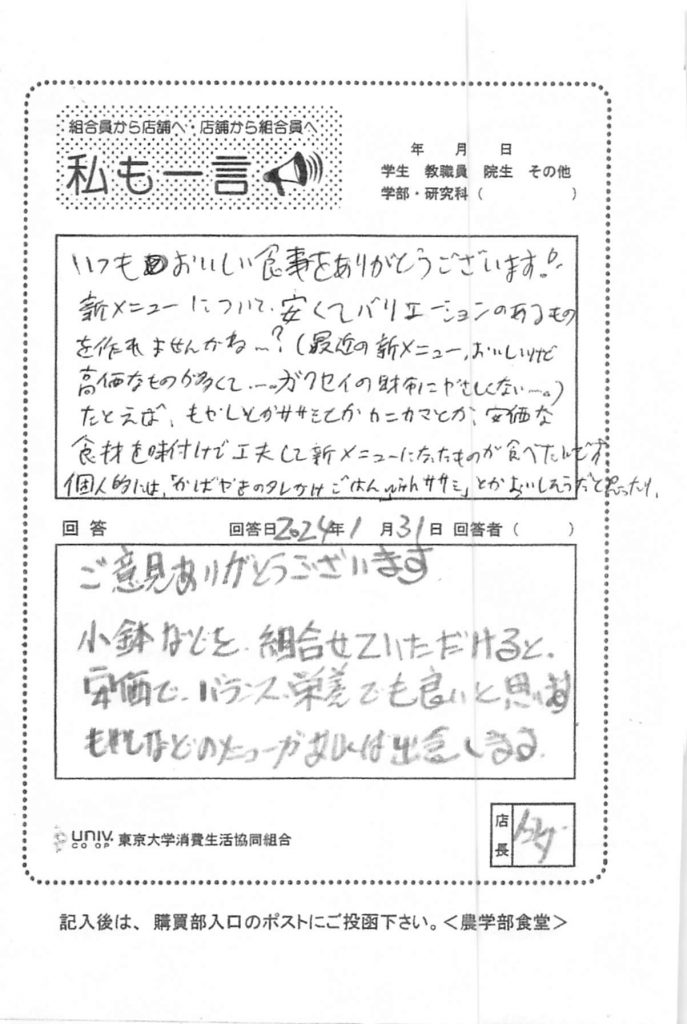 組合員から店舗へ・店舗から組合員へ
私も一言
年 月 日
学生 教職員 院生 その他
学部・研究科（ ）
いつもおいしい食事をありがとうございます!
新メニューについて、安くてバリエーションのあるもの
を作れませんかね…?(最近の新メニュー、おいしいけど
高価なものが多くて…。ガクセイの財布にやさしくない…。)
たとえば、もやしとかササミとかカニカマとか、安価な
食材を味付けで工夫して新メニューになったものが食べたいんです
個人的には、「かばやきのタレかけごはん ササミ」とかおいしそうだと思ったり。
回答 回答日2024年1月31日 回答者（ ）
ご意見ありがとうございます
小鉢などを、組合せていただけると、
安価で、バランス、栄養でも良いと思います
もやしなどのメニューが 出
UNIV. CO-OP 東京大学消費生活協同組合
店長
記入後は、購買部入口のポストにご投函下さい。＜農学部食堂＞